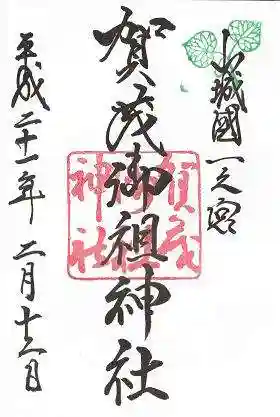 山城國一之宮
賀茂御祖神社
平成二十一年 二月十六日
賀茂
御祖
神社